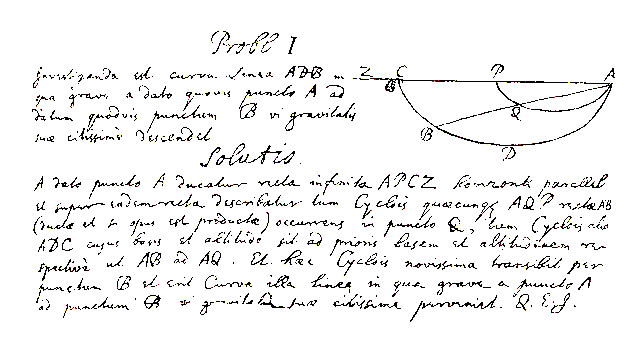 Probl I
Investiganda est curva linea ADB in
qua grave a dato quovis puncto A ad
datum quodvis punctum B vi gravitatis
suæ citissimè descendet
Z C P A
B Q
B
D
Solutio.
A dato puncto A ducatur recta infinita APCZ horizonti parallela
et super eadem recta describatur tum Cyclois quæcunque AQP rectæ AB
(ductæ et si opus est productæ) occurrens in puncto Q, tum Cyclois alia
ADC cujus basis et altitudo sit ad prioris basem et altitudinem res
pectivè ut AB ad AQ. Et hæc Cyclois novissima transibit per
punctum B et erit Curva illa linea in qua grave a puncto A
ad punctum B vi gravitatis suæ citissimè perveniet. Q.E.I.